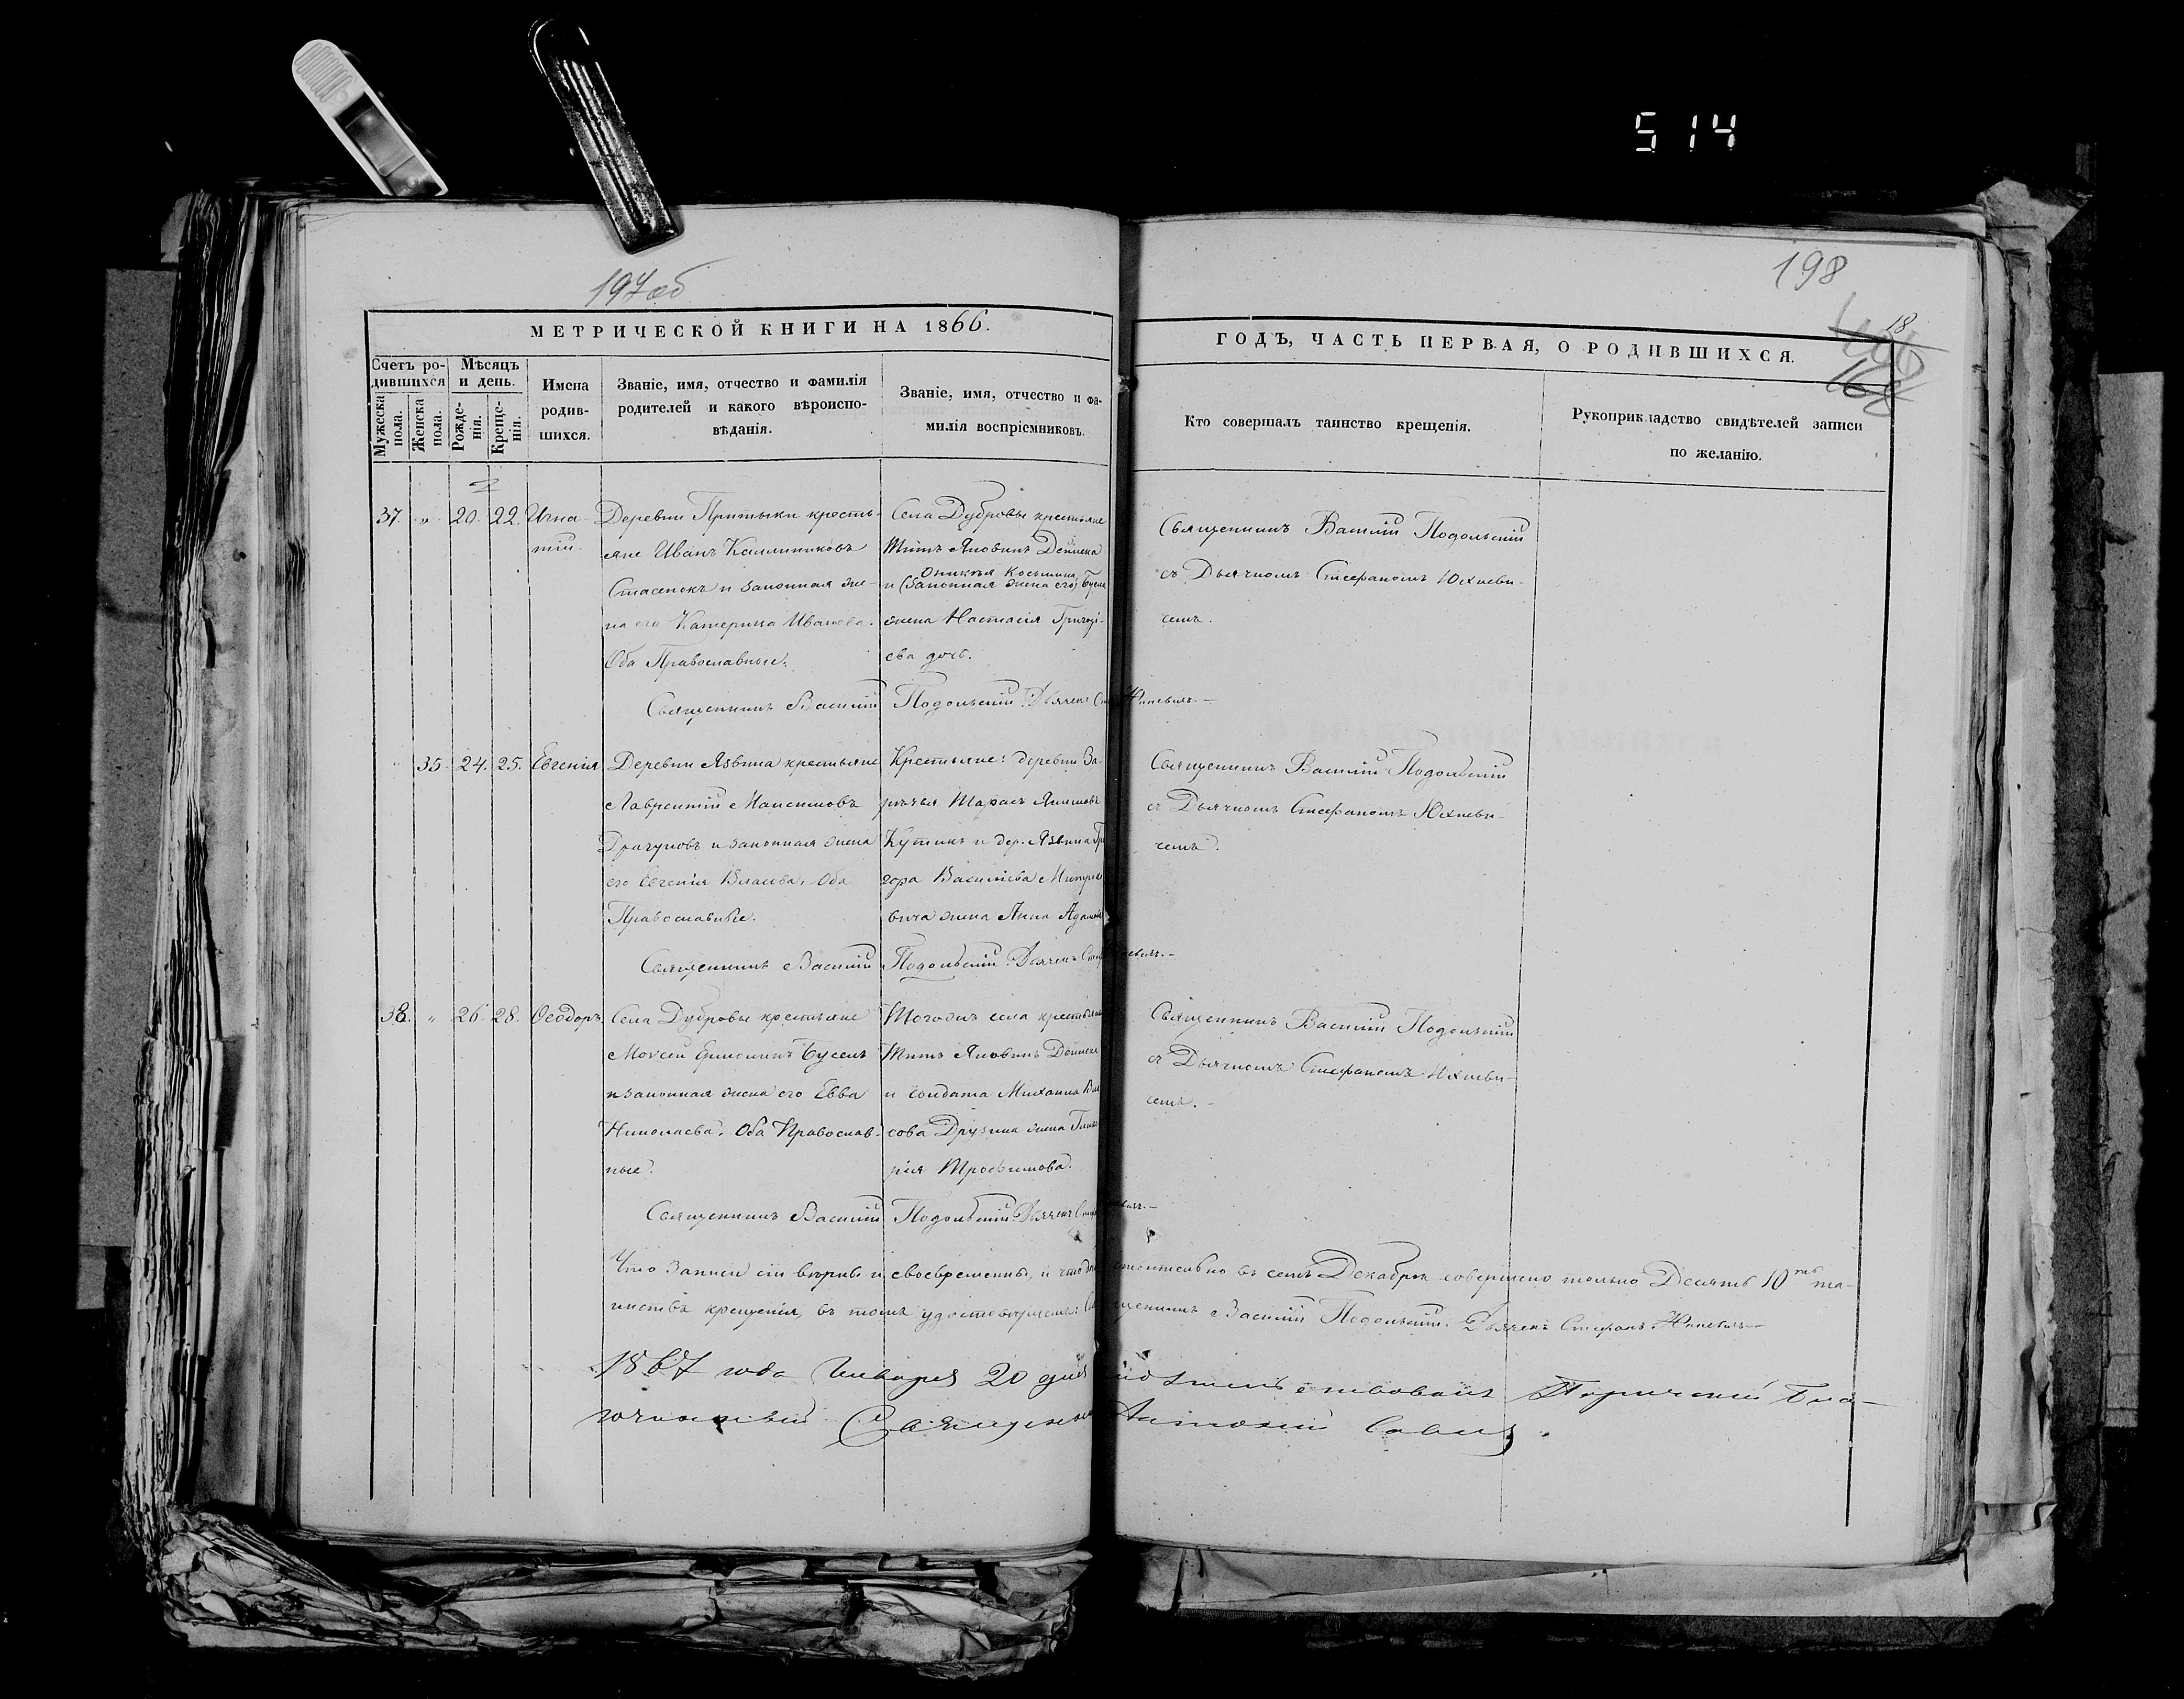 514
197 об
198
18
МЕТРИЧЕСКОЙ КНИГИ НА 1866.
ГОДЪ, ЧАСТЬ ПЕРВАЯ, О РОДИВШИХСЯ.
Счетъ ро-
дившихся
Мужеска
пола.
Женска
пола.
Мѣсяцъ
и день.
Рожде-
нія.
Креще-
нія.
Имена
родив-
шихся.
Званіе, имя, отчество и фамилія
родителей и какого вѣроиспо-
вѣданія.
Званіе, имя, отчество и фа-
милія воспріемниковъ.
Кто совершалъ таинство крещенія.
Рукоприкладство свидѣтелей записи
по желанію.
37. " 20. 22. Игна-
тій.
Деревни Притыки кресть-
яне Иванъ Калиниковъ
Стасенокъ и законная же-
на его Катерина Иванова.
Оба Православные.
Села Дубровы крестьяне
Титъ Яковинъ Дейнека
и (законная жена его)
жена Настасія Григорі-
ева дочь.
Священникъ Василій Подольскій
съ Дьячкомъ Стефаномъ Юхневи-
чемъ.
Священникъ Василій Подольскій Дьячекъ
35. 24. 25. Евгенія
Деревни Язвина крестьяне
Лаврентій Максимовъ
Драгуновъ и законная жена
его Евгенія Власова. Оба
Православные.
Крестьяне: деревни За-
рѣчья Тарасъ Якимовъ
и дер. Язвина Гри
гора Василіева
вича жена Анна
Священникъ Василій Подольскій
съ Дьячкомъ Стефаномъ Юхневи-
чемъ.
Священникъ Василій Подольскій Дьячекъ
38. " 26. 28. Ѳеодоръ
Села Дубровы крестьяне
Моѵсей Буселъ
и законная жена его Евва
Николаева. Оба Православ-
ные.
Тогожъ села крестьяне
Титъ Яковинъ Дейнека
и солдата Михаила
сова жена
рія Трофимова.
Священникъ Василій Подольскій
съ Дьячкомъ Стефаномъ Юхневи-
чемъ.
Священникъ Василій Подольскій Дьячекъ
Что записи сіи вѣрны и своевременны, и что дѣйствительно въ семъ Декабрѣ совершено только Десять 10ть та-
инствъ крещенія, въ томъ удостовѣряемъ: Священникъ Василій Подольскій. Дьячекъ Стефанъ Юхневичъ
1867 года Января 20 дня свидѣтельствовалъ Паричскій Бла-
гочинный Священникъ Антоній Савичъ.